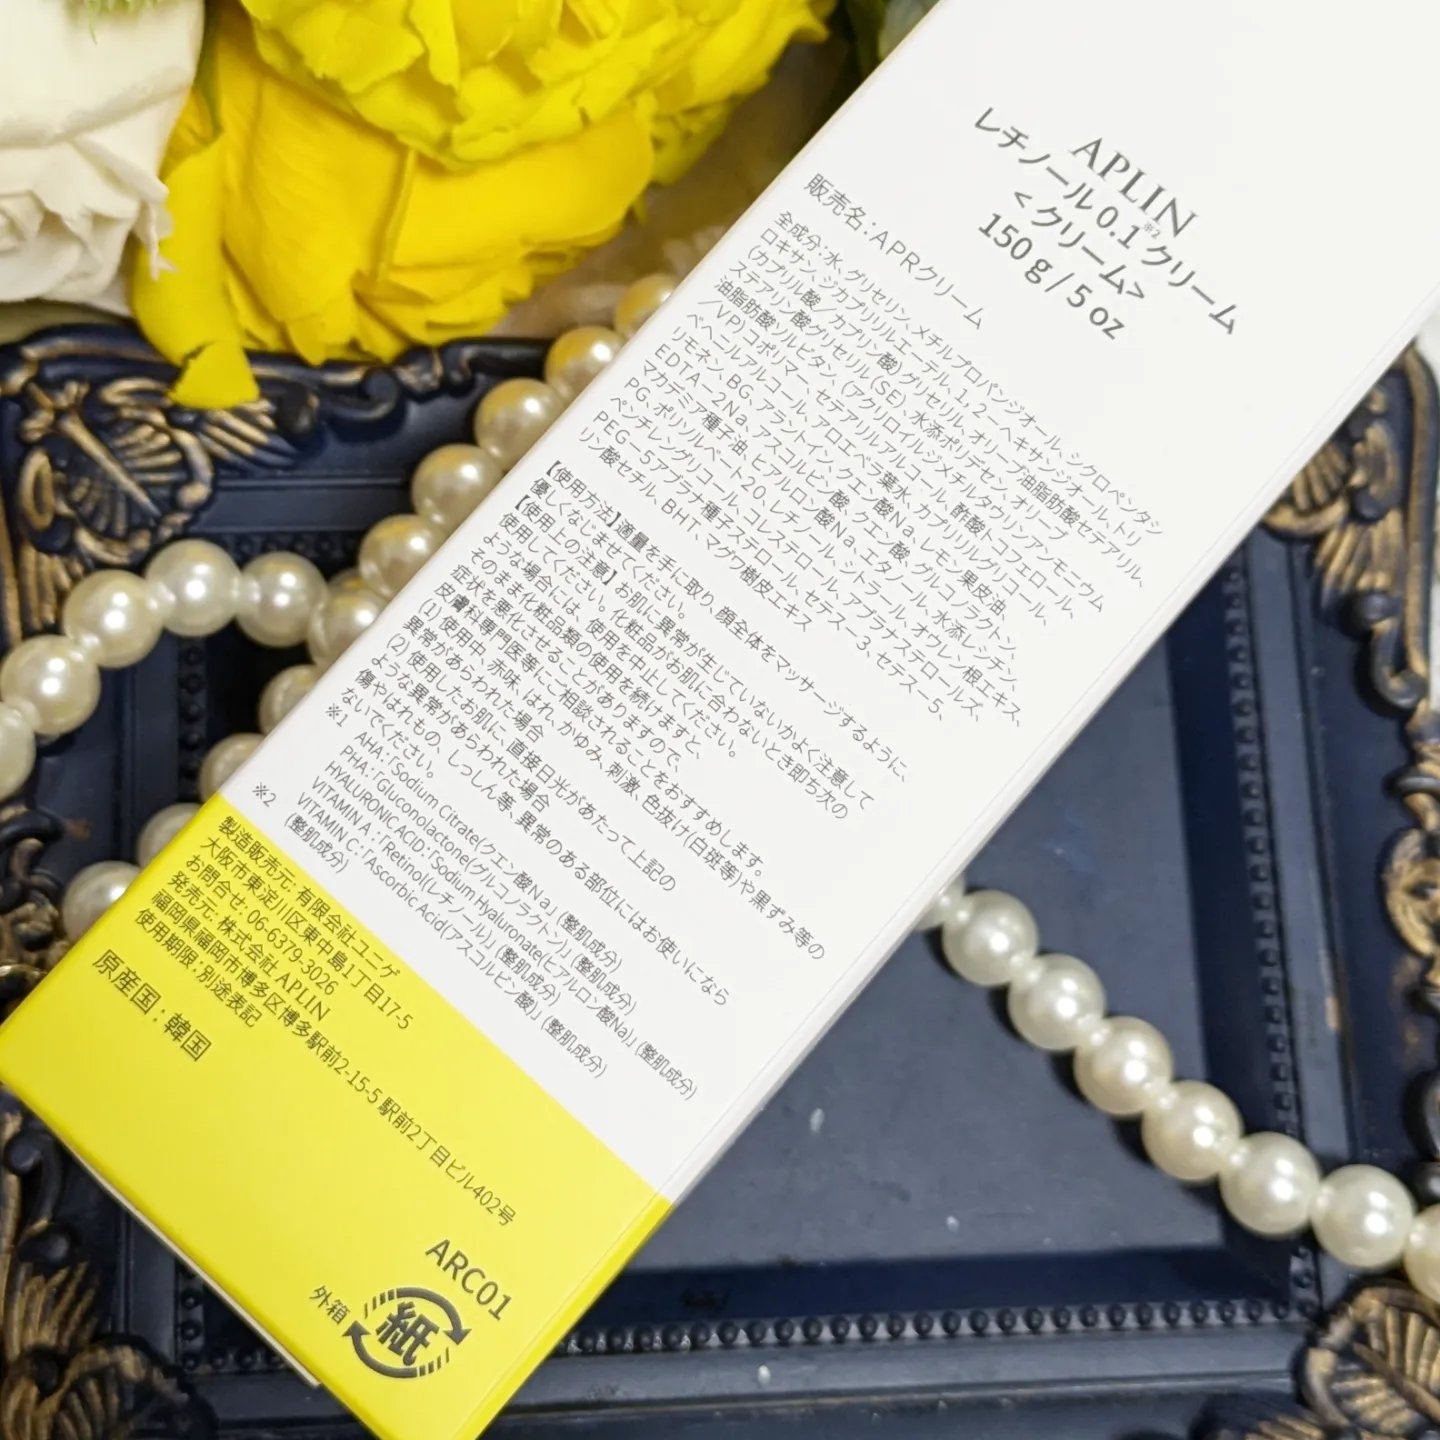 APLIN
レチノール0.1※2クリーム
<クリーム>
150g / 5 oz
販売名：APRクリーム
全成分：水、グリセリン、メチルプロパンジオール、シクロペンタシ
ロキサン、ジカプリリルエーテル、1，2－ヘキサンジオール、トリ
(カプリル酸／カプリン酸)グリセリル、オリーブ油脂肪酸セテアリル、
ステアリン酸グリセリル(SE)、水添ポリデセン、オリーブ
油脂肪酸ソルビタン、(アクリロイルジメチルタウリンアンモニウム
／VP)コポリマー、セテアリルアルコール、酢酸トコフェロール、
ベヘニルアルコール、アロエベラ葉水、カプリリルグリコール、
リモネン、BG、アラントイン、クエン酸Na、レモン果皮油、
EDTA－2Na、アスコルビン酸、クエン酸、グルコノラクトン、
マカデミア種子油、ヒアルロン酸Na、エタノール、水添レシチン、
PG、ポリソルベート20、レチノール、シトラール、オウレン根エキス、
ペンチレングリコール、コレステロール、アブラナステロールズ、
PEG－5アブラナ種子ステロール、セテス－3、セテス－5、
リン酸セチル、BHT、マグワ樹皮エキス
【使用方法】適量を手に取り、顔全体をマッサージするように、
優しくなじませてください。
【使用上の注意】お肌に異常が生じていないかよく注意して
使用してください。化粧品がお肌に合わないとき即ち次の
ような場合には、使用を中止してください。
そのまま化粧品類の使用を続けますと、
症状を悪化させることがありますので、
皮膚科専門医等にご相談されることをおすすめします。
(1)使用中、赤味、はれ、かゆみ、刺激、色抜け(白斑等)や黒ずみ等の
異常があらわれた場合
(2)使用したお肌に、直接日光があたって上記の
ような異常があらわれた場合
傷やはれもの、しっしん等、異常のある部位にはお使いになら
ないでください。
※1 AHA：「Sodium Citrate(クエン酸Na)」(整肌成分)
PHA：「Gluconolactone(グルコノラクトン)」(整肌成分)
HYALURONIC ACID：「Sodium Hyaluronate(ヒアルロン酸Na)」(整肌成分)
VITAMIN A：「Retinol(レチノール)」(整肌成分)
VITAMIN C：「Ascorbic Acid(アスコルビン酸)」(整肌成分)
※2 (整肌成分)
製造販売元：有限会社ユニゲ
大阪市東淀川区東中島1丁目17-5
お問合せ：06-6379-3026
発売元：株式会社 APLIN
福岡県福岡市博多区博多駅前2-15-5 駅前2丁目ビル402号
使用期限：別途表記
原産国：韓国
ARC01
外箱
紙